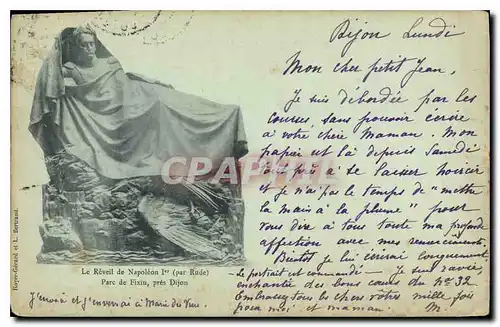 Dijon Lundi
Mon cher petit Jean,
Je suis débordée par les
courses, sans pouvoir écrire
à votre chère Maman. Mon
papier est là depuis Samedi
tout prêt à se laisser noircir
et je n'ai pas le temps de "mettre
la main à la plume" pour
vous dire à tous toute ma profonde
affection avec mes remerciements.
Bientôt je lui écrirai longuement.
Le portrait est commandé — Je suis ravie,
enchantée des bons cours du Nº 32
Embrassez tous les chers vôtres mille fois
pour moi et maman. M.
Le Réveil de Napoléon Ier (par Rude)
Parc de Fixin, près Dijon
J'envoie et j'enverrai à Marie des vues.
Royer-Gérard et L. Bertrand.
CPARAMA